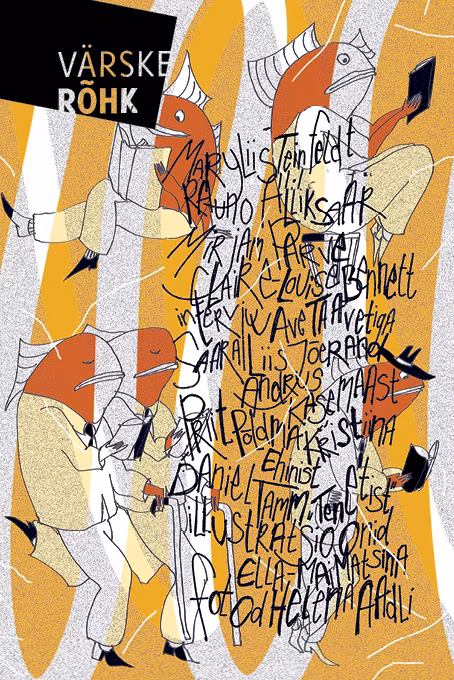 VÄRSKE
RÕHK
MARYLIIS TEINFELDT
RAUNO ALLIKSAAR
MIRJAM PARVE
CLAIRE-LOUISE BENNETT
INTERVJUU AVE TAAVETIGA
SAARALIIS JÕERAND
ANDRUS KASEMAA
PRIIT PÕLDMA KRISTIINA
EHINIST
DANIEL TAMM
ILLUSTRATSIOONID
ELLA-MAI MATSINA
FOTOD HELENA AADLI